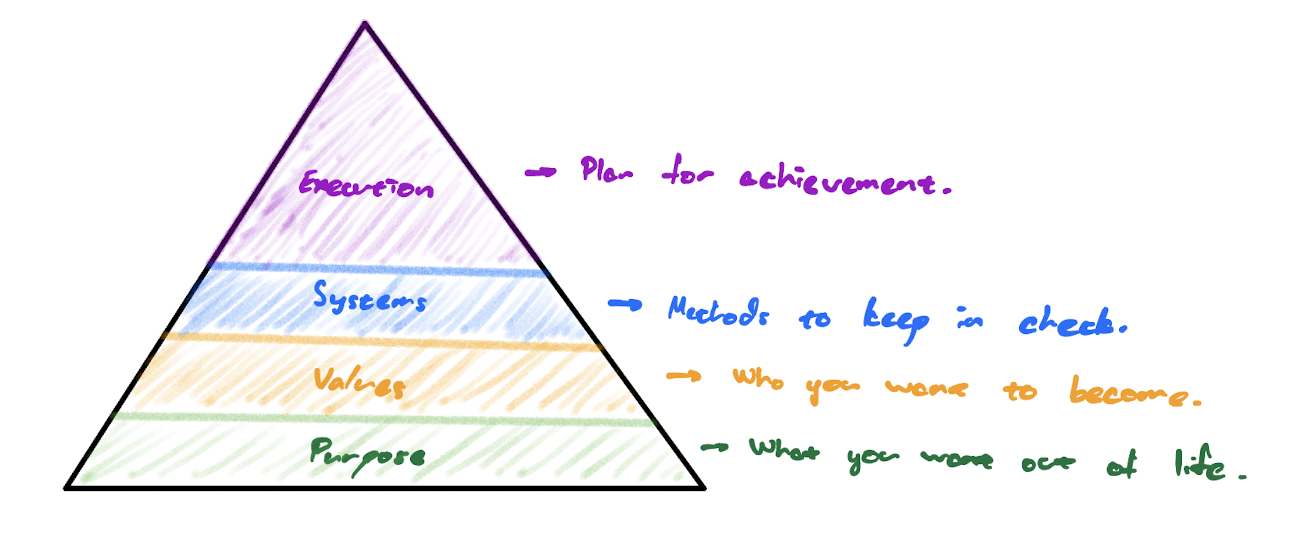 Execution → Plan for achievement.
Systems → Methods to keep in check.
Values → Who you want to become.
Purpose → What you want out of life.